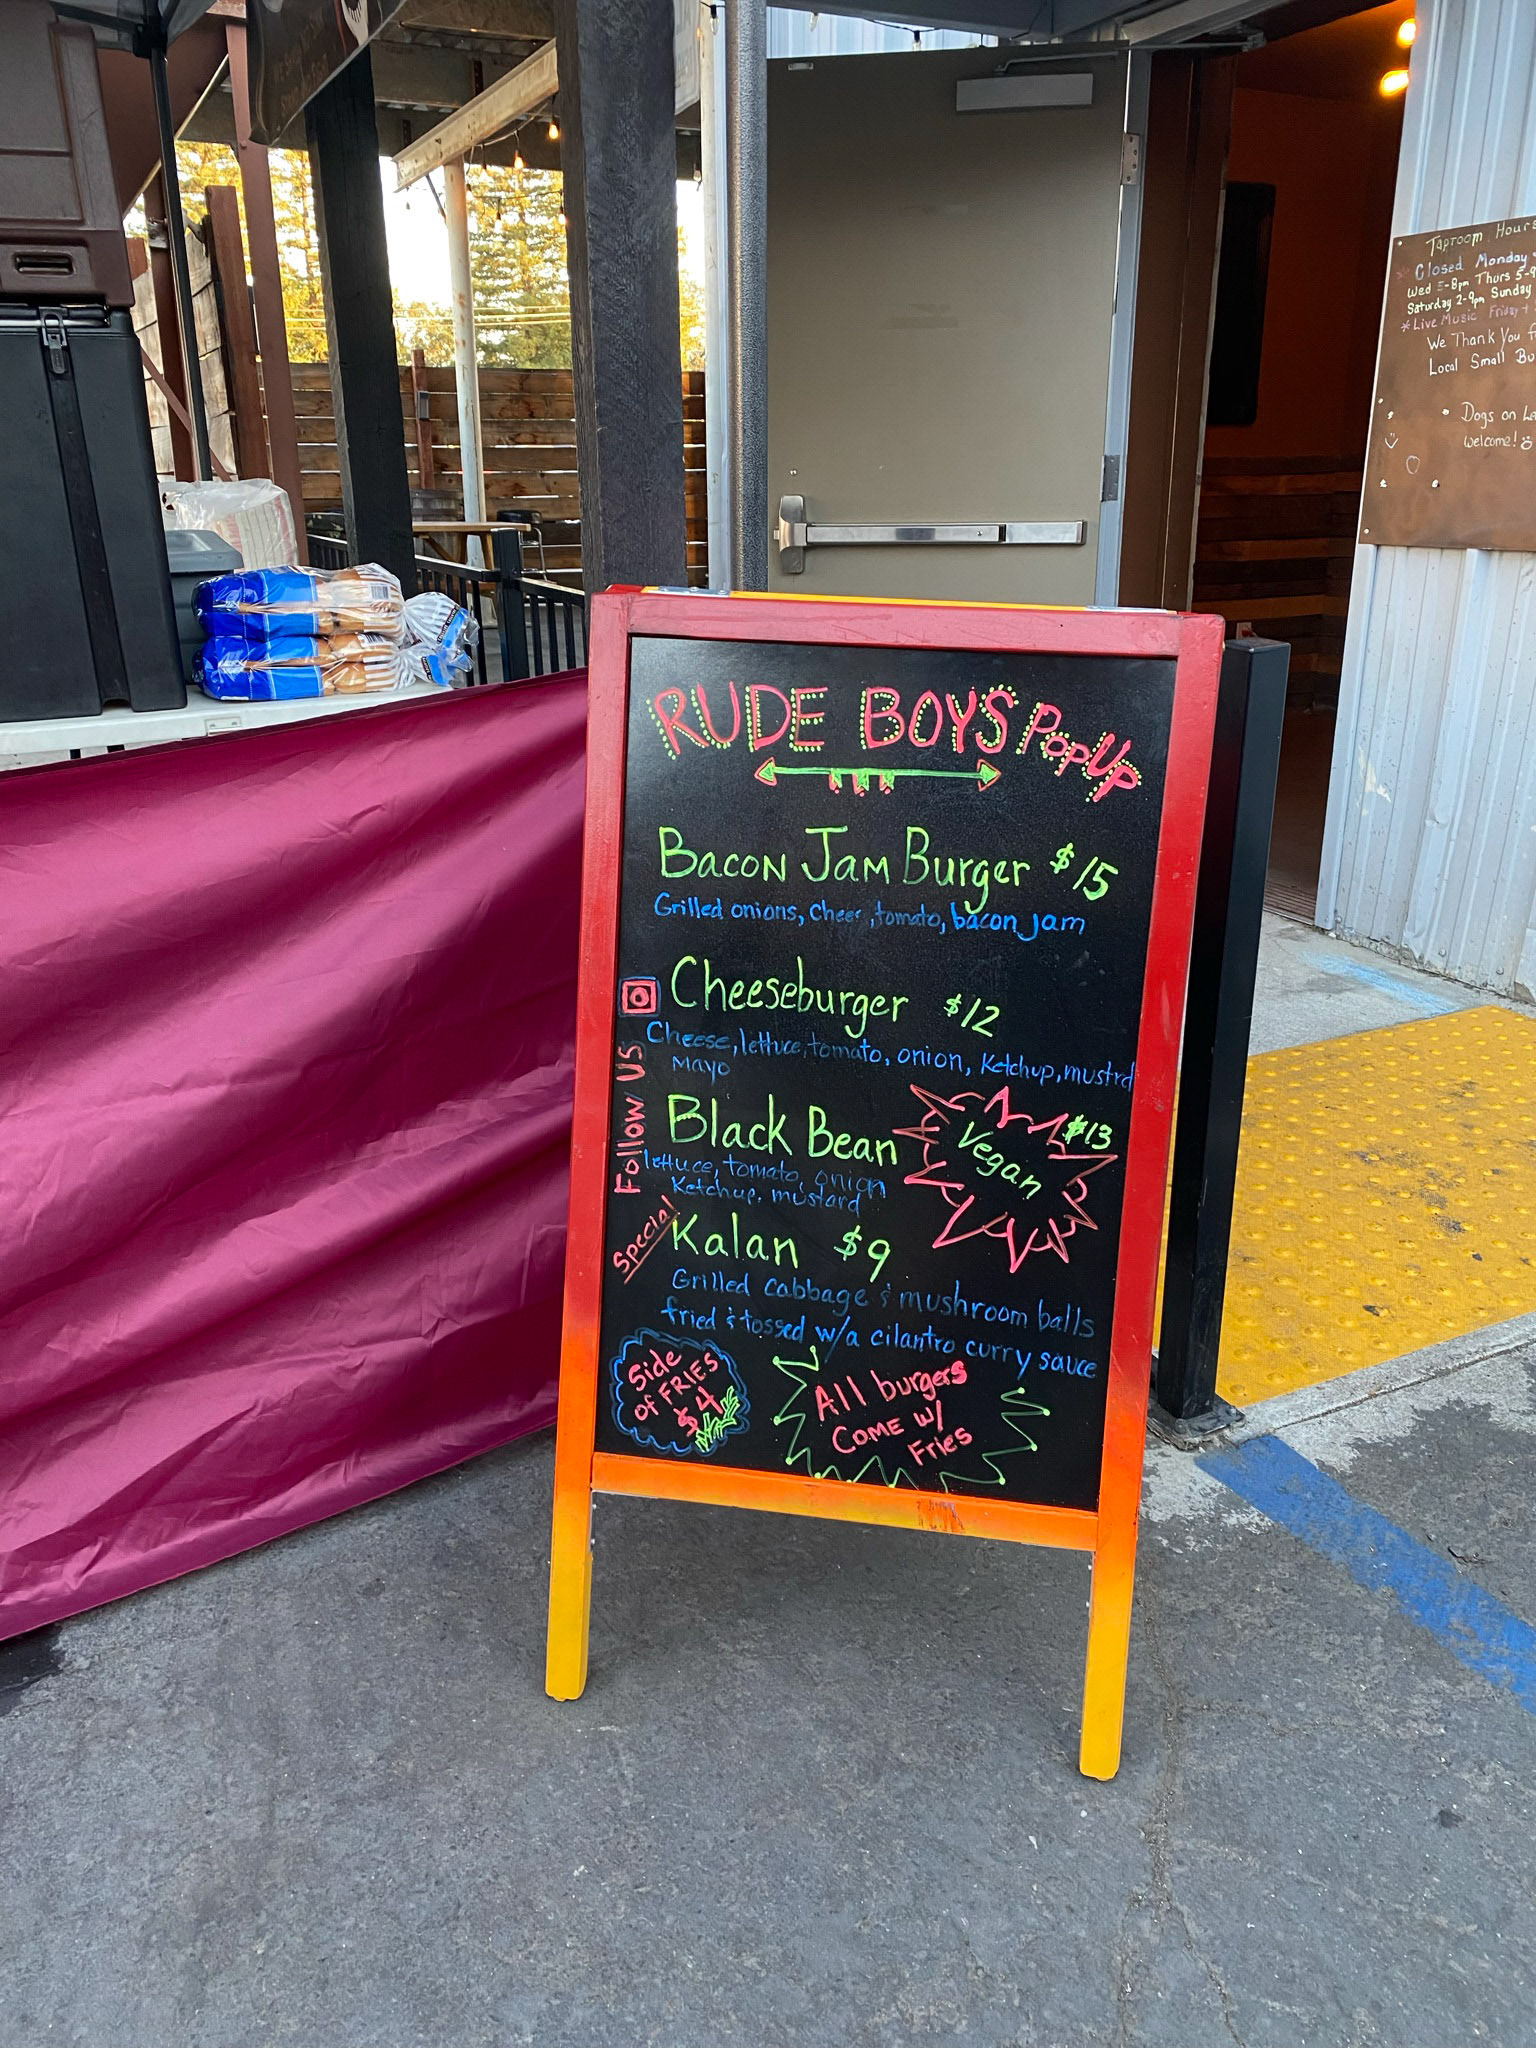 Taproom Hours
Closed Monday
Wed 5-8pm Thurs 5-9
Saturday 2-9pm Sunday
*Live Music Friday +
We Thank You
Local Small Bu
Dogs on Le
Welcome!
RUDE BOYS PopUP
Bacon Jam Burger $15
Grilled onions, Cheese, tomato, bacon jam
Cheeseburger $12
Cheese, lettuce, tomato, onion, Ketchup, mustrd
Mayo
Follow US
Black Bean
Vegan
$13
lettuce, tomato, onion
Ketchup. mustard
Special
Kalan $9
Grilled cabbage & mushroom balls
fried & tossed w/a cilantro curry sauce
Side
of FRIES
$4
All burgers
Come w/
Fries